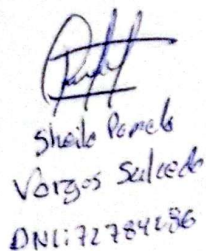 Sheila Pamela
Vargas Salcedo
DNI: 72784286